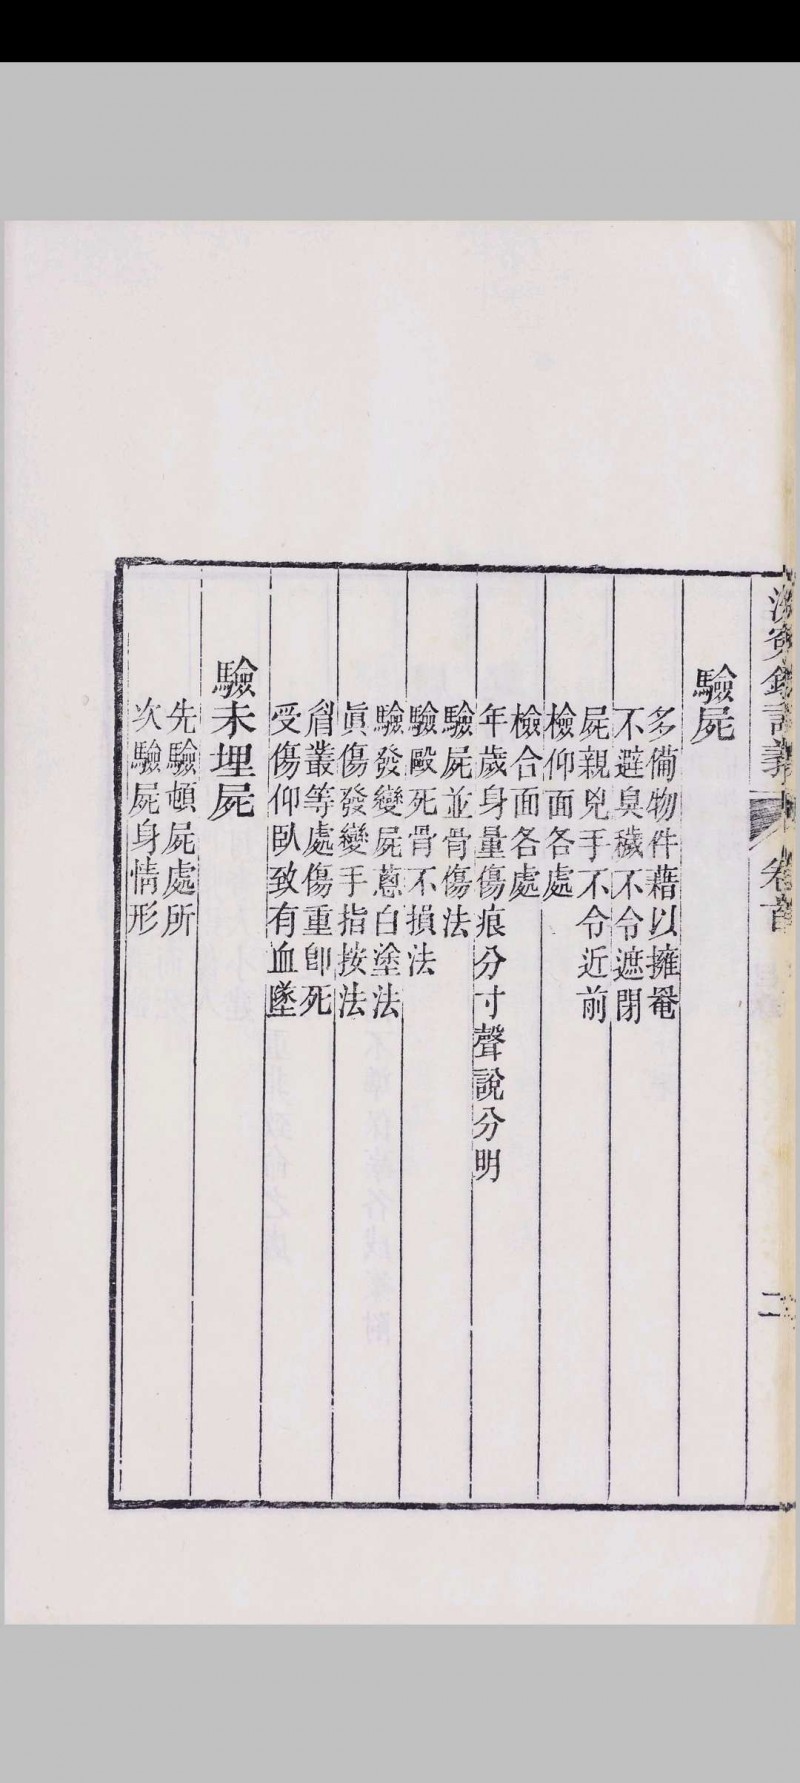 洗冤錄詳義 卷首 二
驗屍
多備物件藉以擁罨
不避臭穢不令遮閉
屍親兇手不令近前
檢仰面各處
檢合面各處
年歲身量傷痕分寸聲說分明
驗屍並骨傷法
驗毆死骨不損法
驗發變屍蔥白塗法
眞傷發變手指按法
肩叢等處傷重卽死
受傷仰臥致有血墜
驗未埋屍
先驗頓屍處所
次驗屍身情形